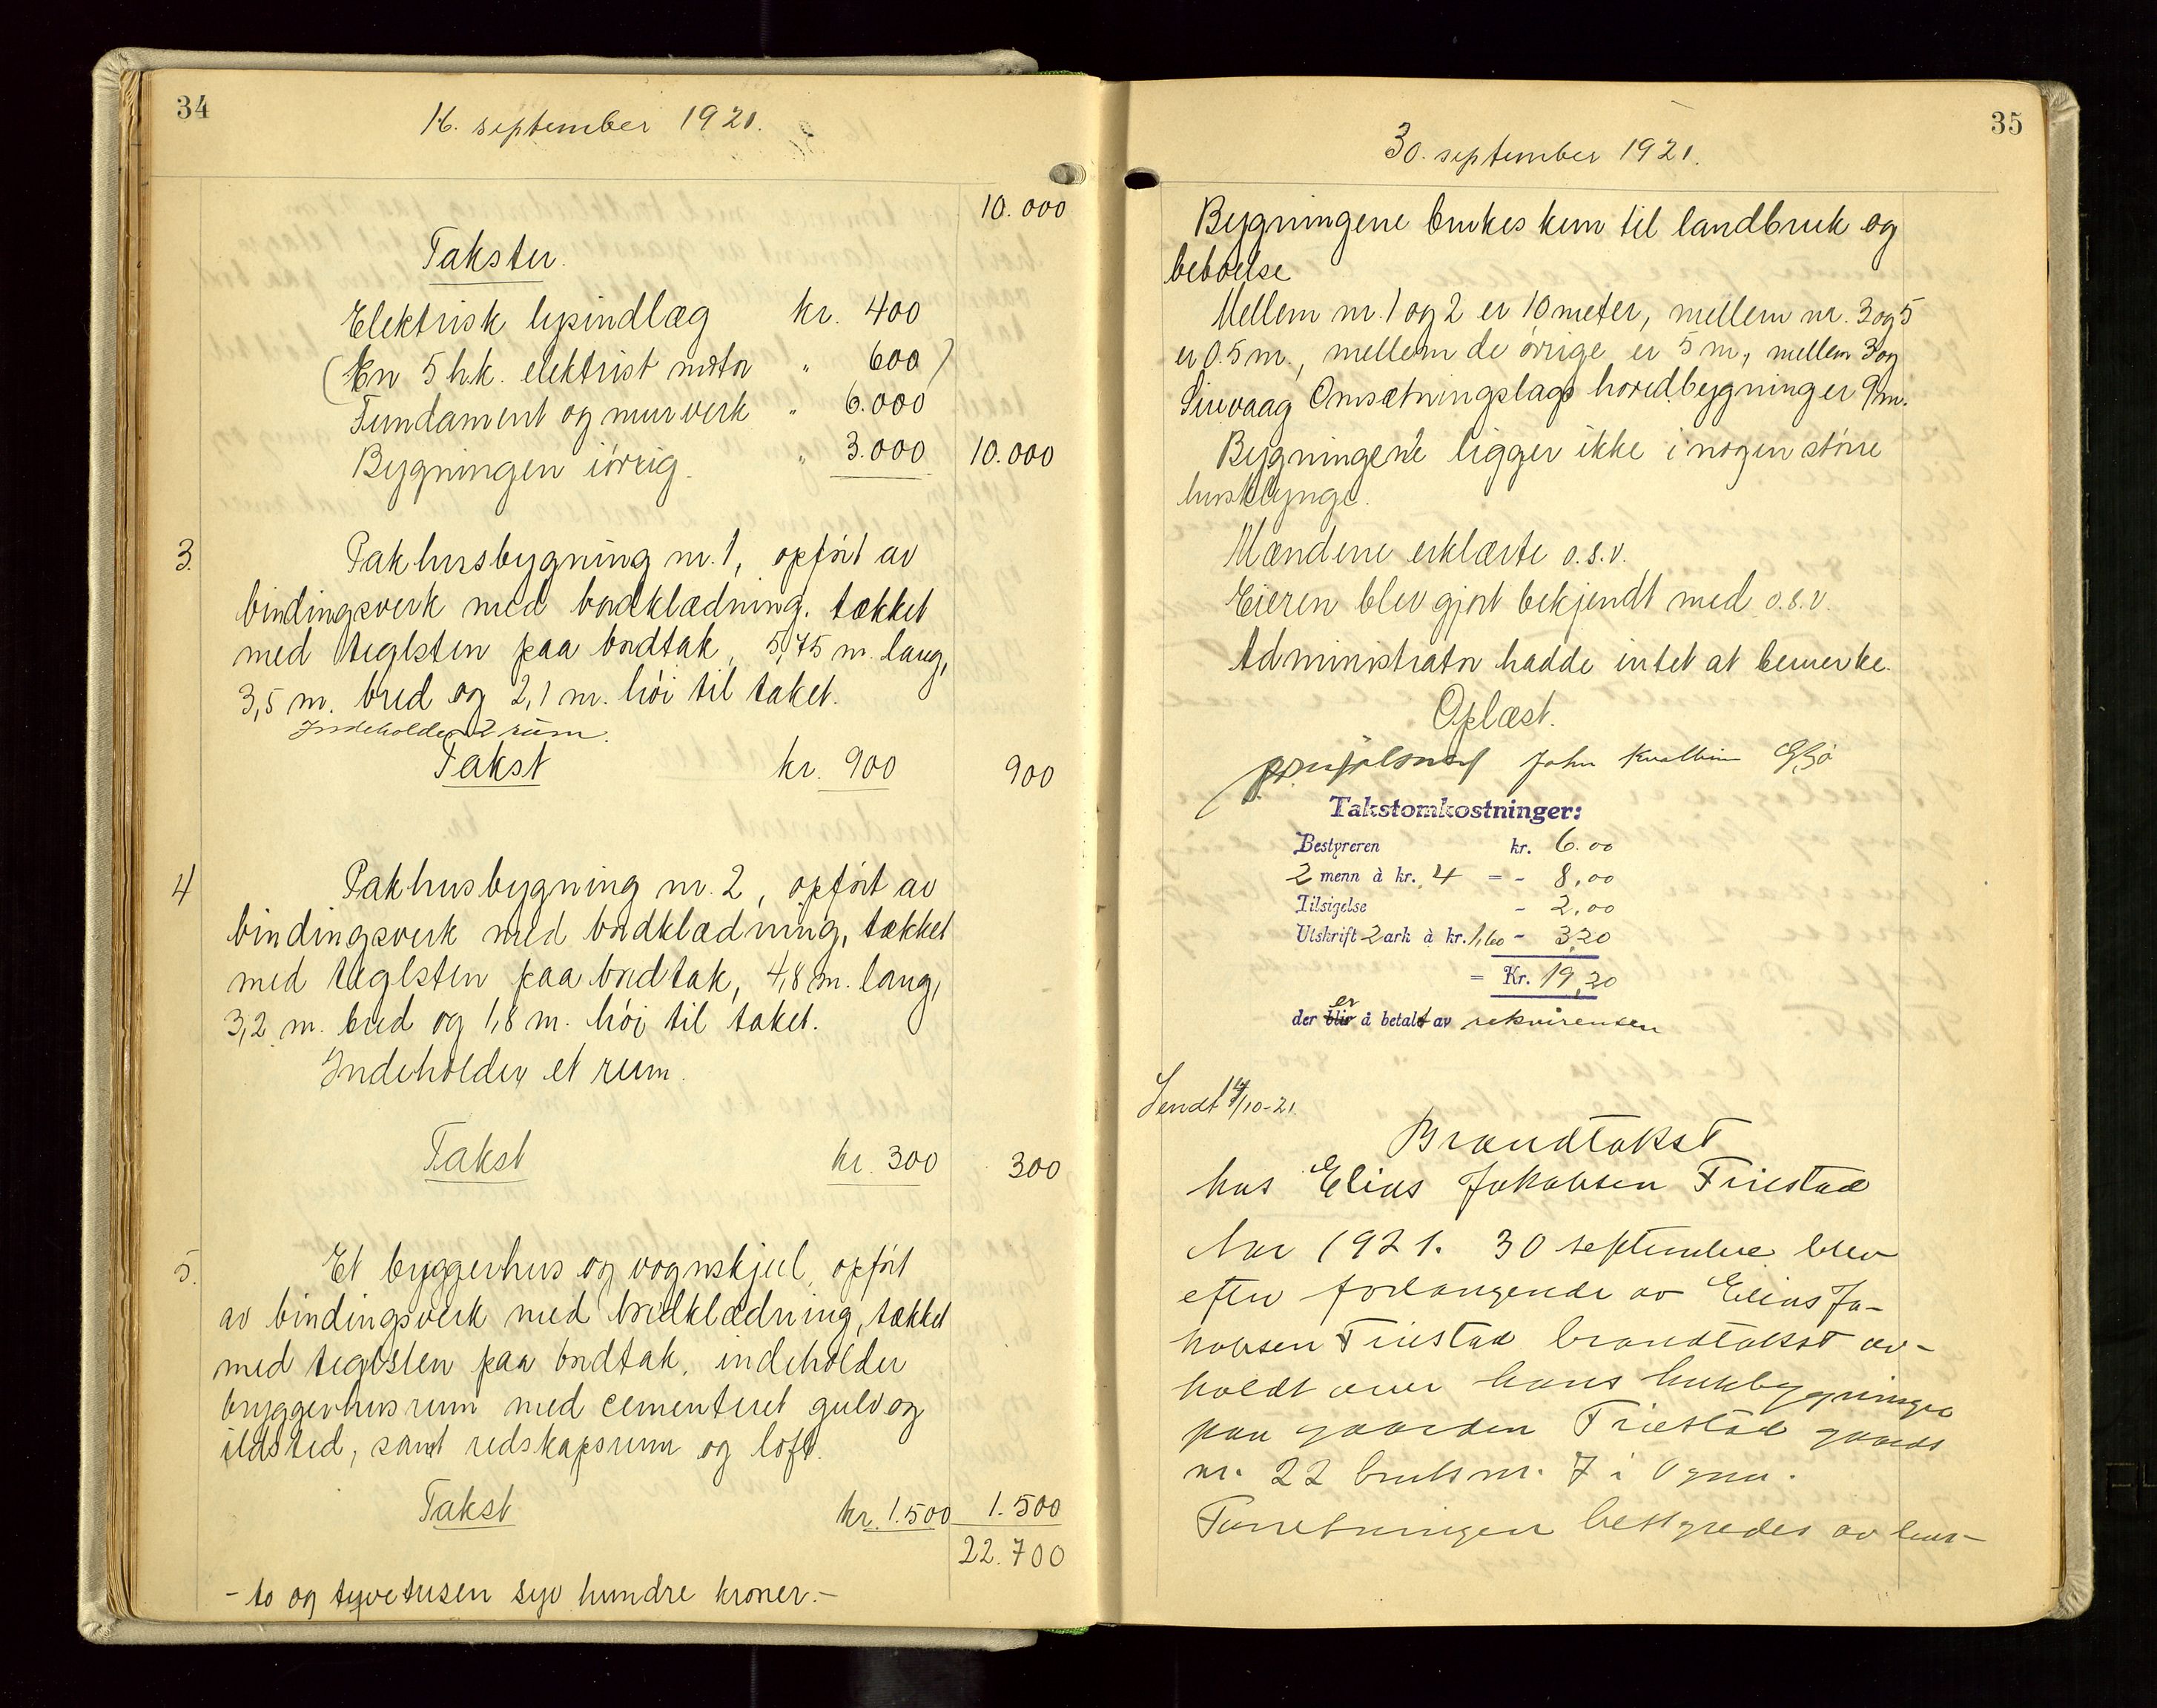 34
16. september 1921.
10.000
Takster.
Elektrisk lysindlæg kr. 400
(En 5 h.k. elektrisk motor " 600)
Fundament og murverk " 6.000
Bygningen iørrig. " 3.000 10.000
3. Pakhusbygning nr. 1, opført av
bindingsverk med bordklædning, tækket
med teglsten paa bordtak, 5,75 m. lang,
3,5 m. bred og 2,1 m. høi til taket.
Indeholder 2 rum.
Takst kr. 900 900
4 Pakhusbygning nr. 2, opført av
bindingsverk med bordklædning, tækket
med teglsten paa bordtak, 4,8 m. lang,
3,2 m. bred og 1,8 m. høi til taket.
Indeholder et rum.
Takst kr. 300 300
5. Et byggerhus og vognskjul, opført
av bindingsverk med bordklædning, tækket
med teglsten paa bordtak, indeholder
bryggerhusrum med cementeret gulv og
ildsted, samt redskapsrum og loft.
Takst kr. 1.500 1.500
22.700
- to og tyvetusen syv hundre kroner.-
35
30. september 1921.
Bygningene brukes kun til landbruk og
beboelse
Mellem nr. 1 og 2 er 10 meter, mellem nr. 3 og 5
er 0.5 m., mellem de øvrige er 5 m., mellem 3 og
Sirevaag Omsætningslags hovedbygning er 9 m.
Bygningene ligger ikke i nogen større
husklynge.
Mændene erklærte o.s.v.
Eieren blev gjort bekjendt med o.s.v.
Administrator hadde intet at bemerke.
Oplæst.
John
Takstomkostninger:
Bestyreren kr. 6.00
2 menn à kr. 4 = - 8,00
Tilsigelse - 2,00
Utskrift 2 ark à kr. 1,60 - 3,20
= Kr. 19,20
er
der bliv å betalt av rekvirenten
Sendt 14/10-21.
Brandtakst
hos Elias Jakobsen Friestad
Aar 1921. 30 september blev
efter forlangende av Elias Ja-
kobsen Friestad brandtakst av-
holdt over hans husbygninger
paa gaarden Friestad gaards
nr. 22 bruksnr. 7 i Ogna.
Forretningen bestyredes av lens-